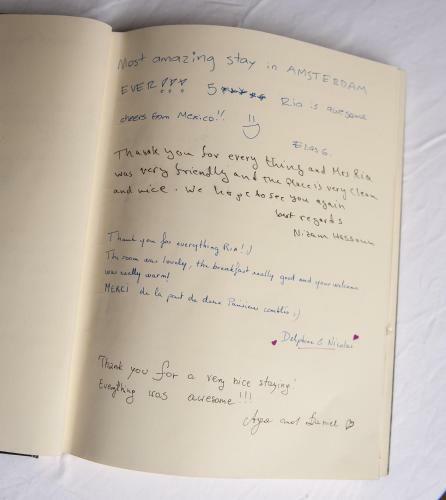 Most amazing stay in AMSTERDAM
EVER!!! 5 ***** Ria is awesome
cheers from Mexico!! :)
Thank you for every thing and Mrs Ria
was very friendly and the place is very clean
and nice. We hope to see you again
best regards
Nizam Hassoun
Thank you for everything Ria! :)
The room was lovely, the breakfast really good and your welcome
was really warm!
MERCI de la part de deux Parisiens comblés :)
Delphine & Nicolas
Thank you for a very nice staying!
Everything was awesome!!!
and Daniel ♡